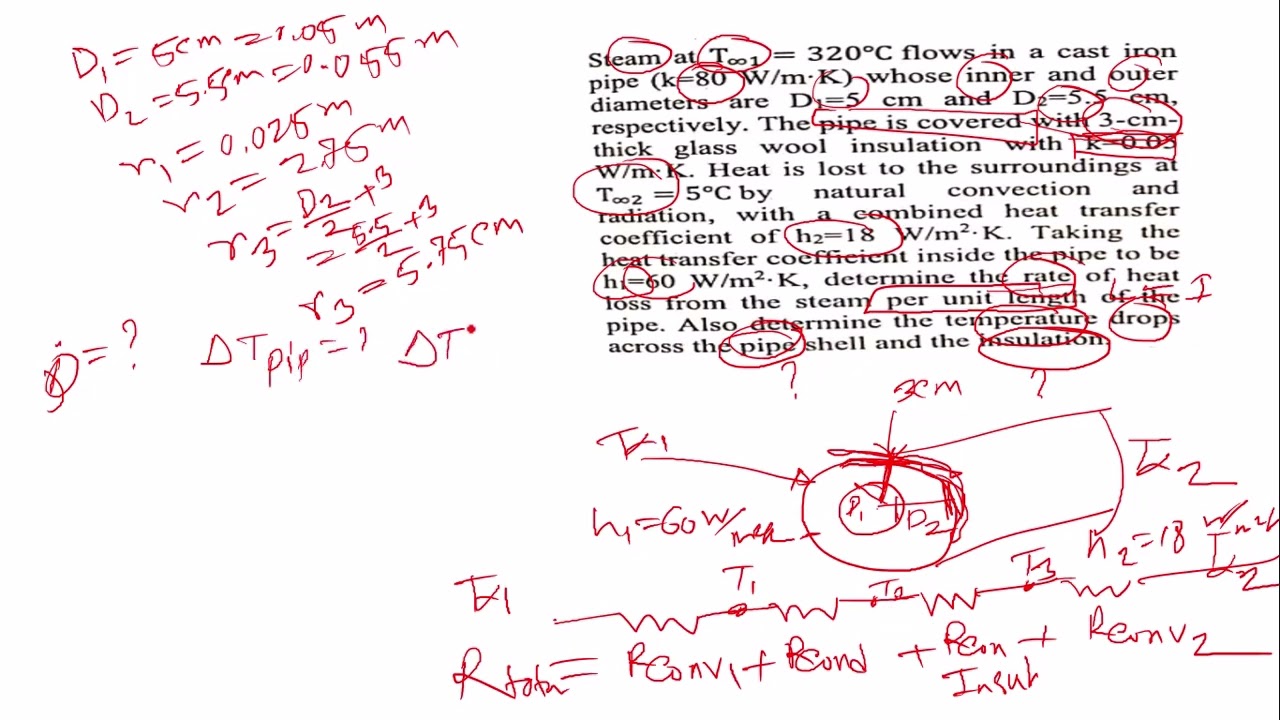 D₁ = 5cm = 0.05 m
D₂ = 5.5cm = 0.055 m
r₁ = 0.025 m
r₂ = 2.75 m
r₃ = D₂/2 + 3
= 5.5/2 + 3
r₃ = 5.75 cm
Q̇ = ? ΔTpip = ? ΔT
Steam at T∞1 = 320°C flows in a cast iron
pipe (k=80 W/m·K) whose inner and outer
diameters are D₁=5 cm and D₂=5.5 cm,
respectively. The pipe is covered with 3-cm-
thick glass wool insulation with k=0.05
W/m·K. Heat is lost to the surroundings at
T∞2 = 5°C by natural convection and
radiation, with a combined heat transfer
coefficient of h₂=18 W/m²·K. Taking the
heat transfer coefficient inside the pipe to be
h₁=60 W/m²·K, determine the rate of heat
loss from the steam per unit length of the
pipe. Also determine the temperature drops
across the pipe shell and the insulation.
? ?
3cm
T∞1
T∞2
D₁ D₂
h₁=60 W/m²k
h₂=18 W/m²k
T∞1 T₁ T₂ T₃ T∞2
Rtotal = Rconv₁ + Rcond + Rcon Insul + Rconv₂